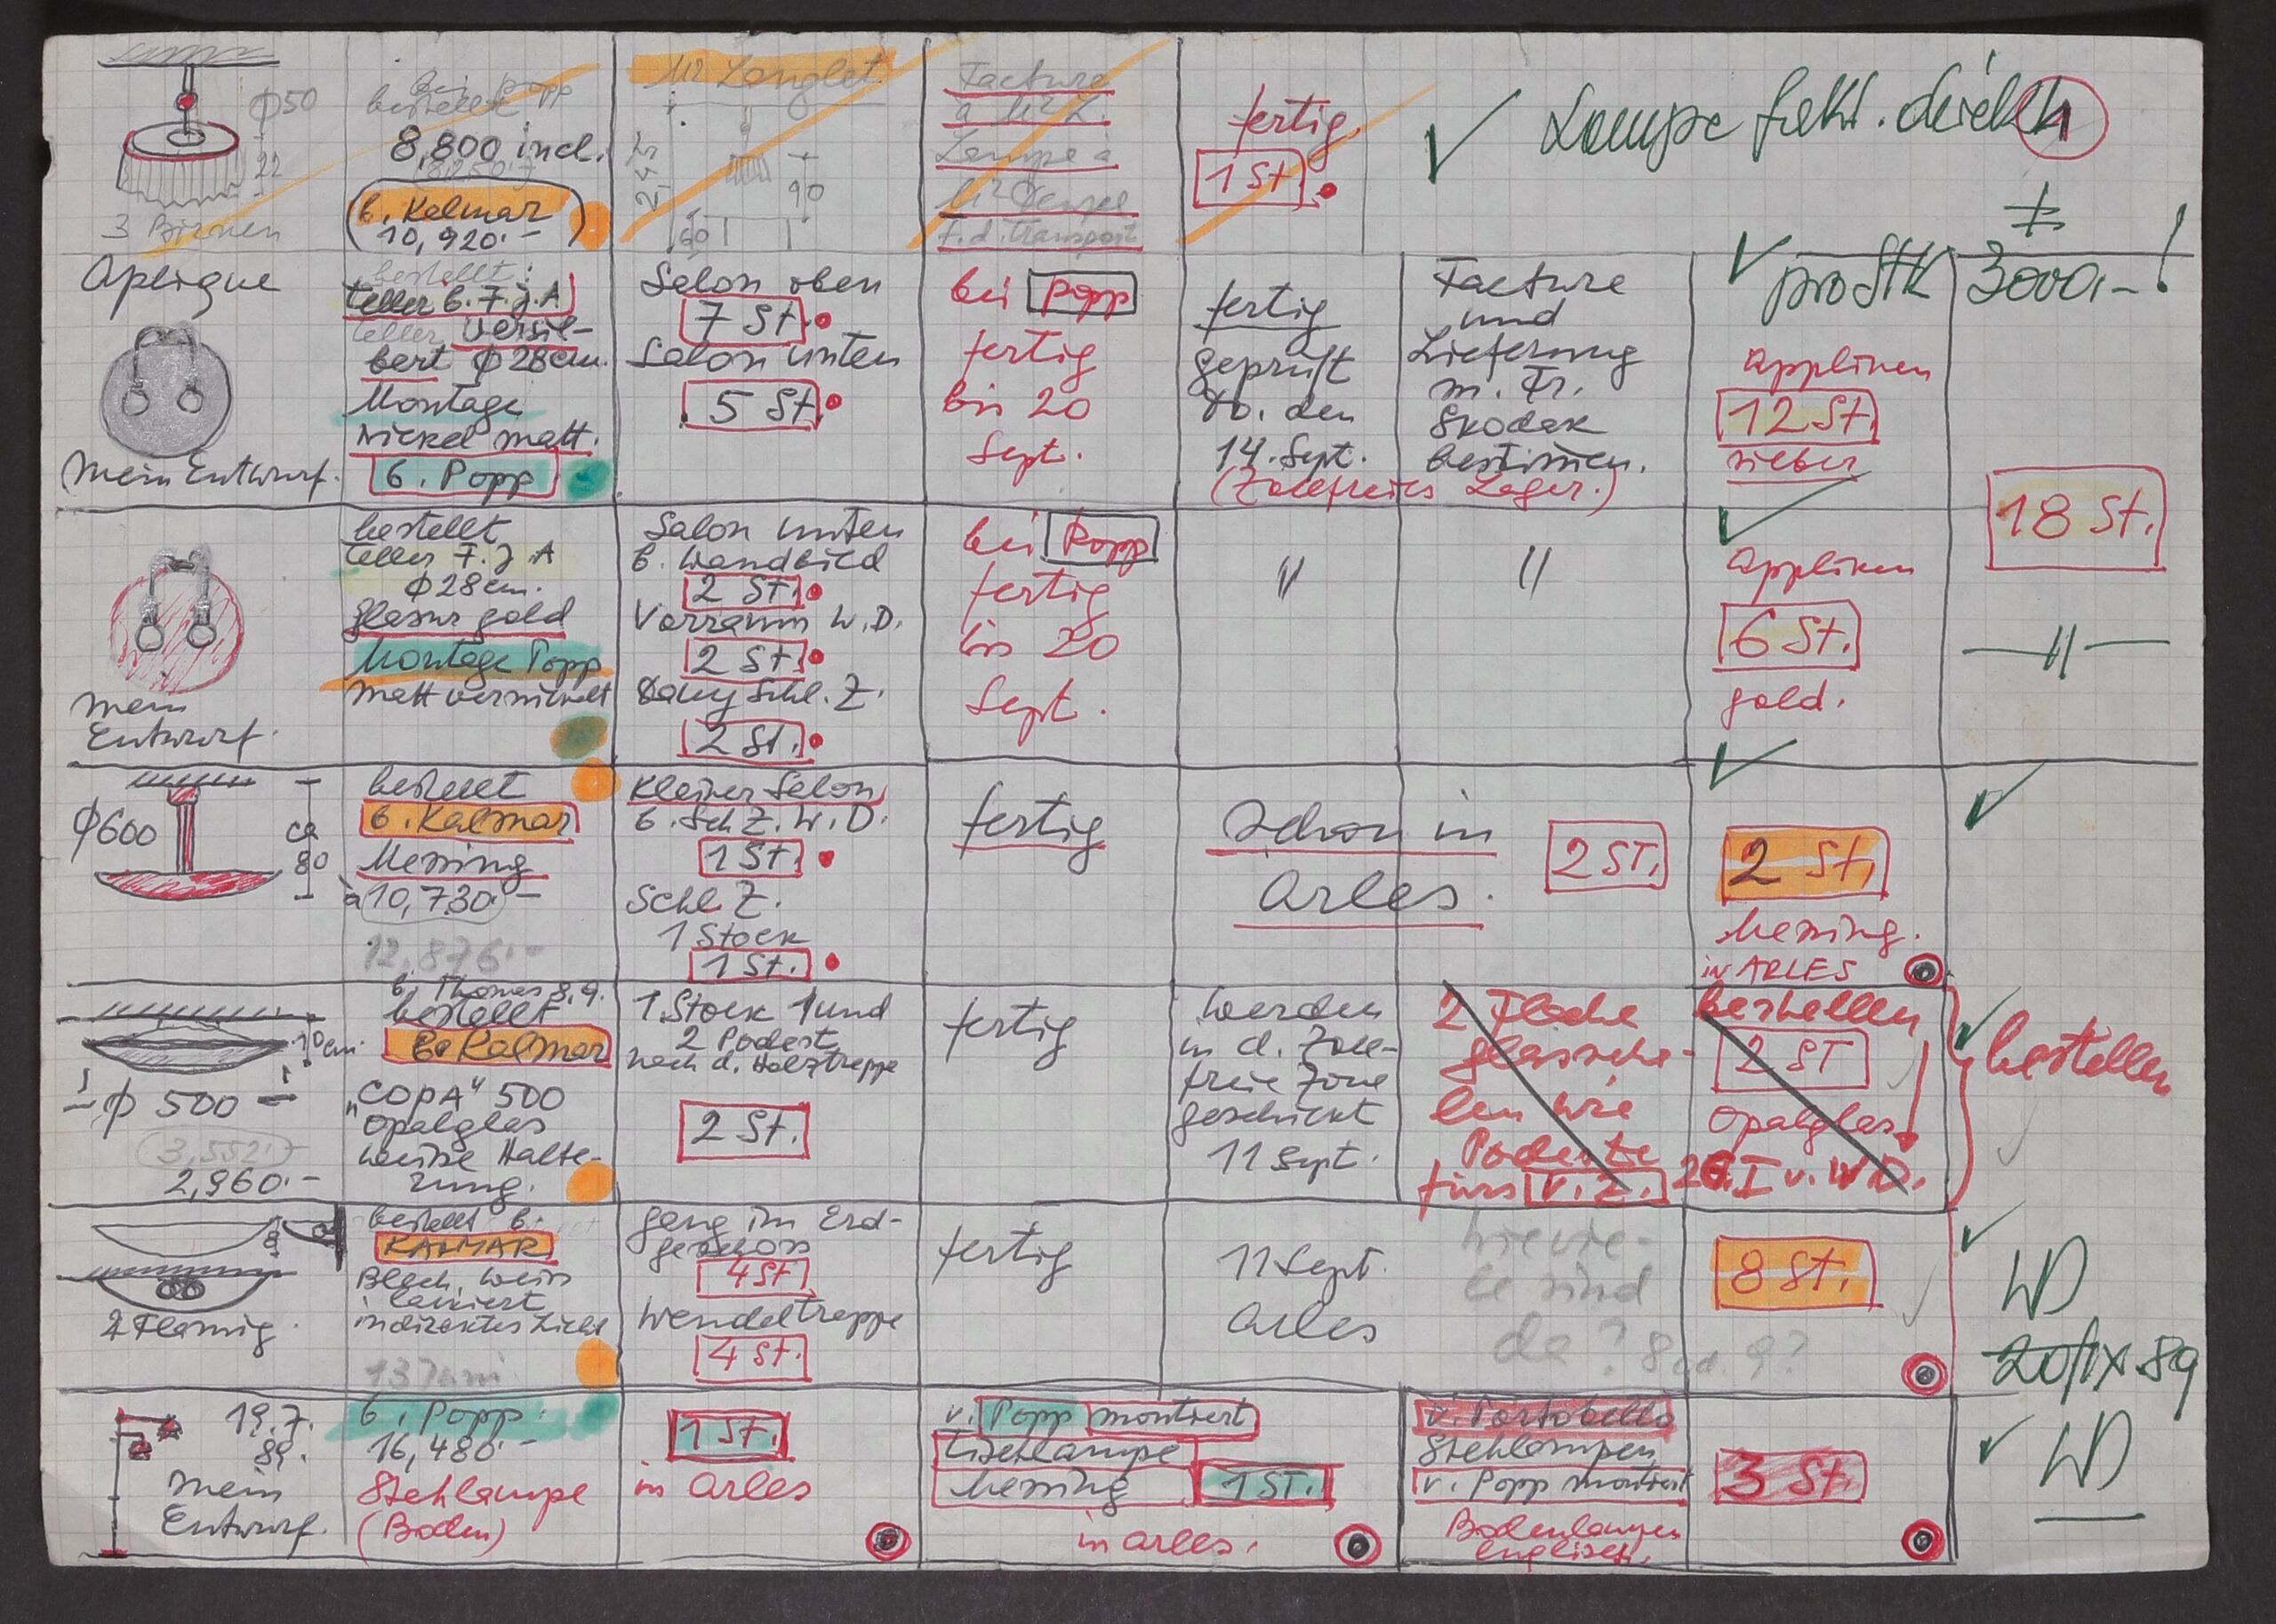 Φ50
22
3 Birnen
bei Popp
bestellt
8,800 incl.
b. Kalmar
10,920.-
M² Longlet
2,45
90
60
Facture
a M² L.
Lampe a
f. d. Transport
fertig.
1 St.
Lampe fakt. direkt
1
Aplique
mein Entwurf.
bestellt:
Teller b. F.J.A
Teller versil-
bert Φ 28cm.
Montage
Nickel matt.
b. Popp
Salon oben
7 St.
Salon unten
5 St.
bei Popp
fertig
bis 20
Sept.
fertig
geprüft
14. Sept.
(Zollfreies Lager.)
Facture
und
Lieferung
m. Fr.
Skodak
bestimmen.
pro Stk
3000.- !
Appliken
12 St.
silber
18 St.
mein
Entwurf.
bestellt
Teller F.J.A
Φ 28cm.
glasur gold
Montage Popp
matt vernickelt
Salon unten
b. Wandbild
2 St.
Vorraum W.D.
2 St.
Dany Schl. Z.
2 St.
bei Popp
fertig
bis 20
Sept.
"
"
Appliken
6 St.
gold.
— " —
Φ600
ca
80
bestellt
b. Kalmar
Messing
à 10,730.-
12,876.-
Kleiner Salon
b. Sch Z. W. D.
1 St.
Schl Z.
1 Stock
1 St.
fertig
schon in
Arles.
2 ST.
2 St.
Messing.
in ARLES
10cm.
Φ 500
3,552.-
2,960.-
b. Thomas 8.9.
bestellt
b. Kalmar
"COPA" 500
opalglas
weisse Halte-
rung.
1 Stock 1 und
2 Podest
nach d. Holztreppe
2 St.
fertig
werden
in d. Zoll-
freie Zone
geschickt
11 Sept.
2 Flache
glassscha-
len wie
Podeste
fürs V. Z.
bestellen
2 ST
opalglas
I v. W D.
bestellen
2 Flamig.
bestellt b.
KALMAR
Blech, weiss
lackiert
indirektes Licht
13 Juni
gang im Erd-
geschoss
4 St
Wendeltreppe
4 St.
fertig
11 Sept.
Arles
wievie-
le sind
da? 8 od. 9?
8 St.
WD
20/IX.89
19.7.
89.
mein
Entwurf.
b. Popp.
16,480.-
Stehlampe
(Boden)
1 St.
in Arles
v. Popp montiert
Tischlampe
Messing
1 ST.
in Arles.
v. Portobello
Stehlampen
v. Popp montiert
Bodenlampen
englisch.
3 St.
WD